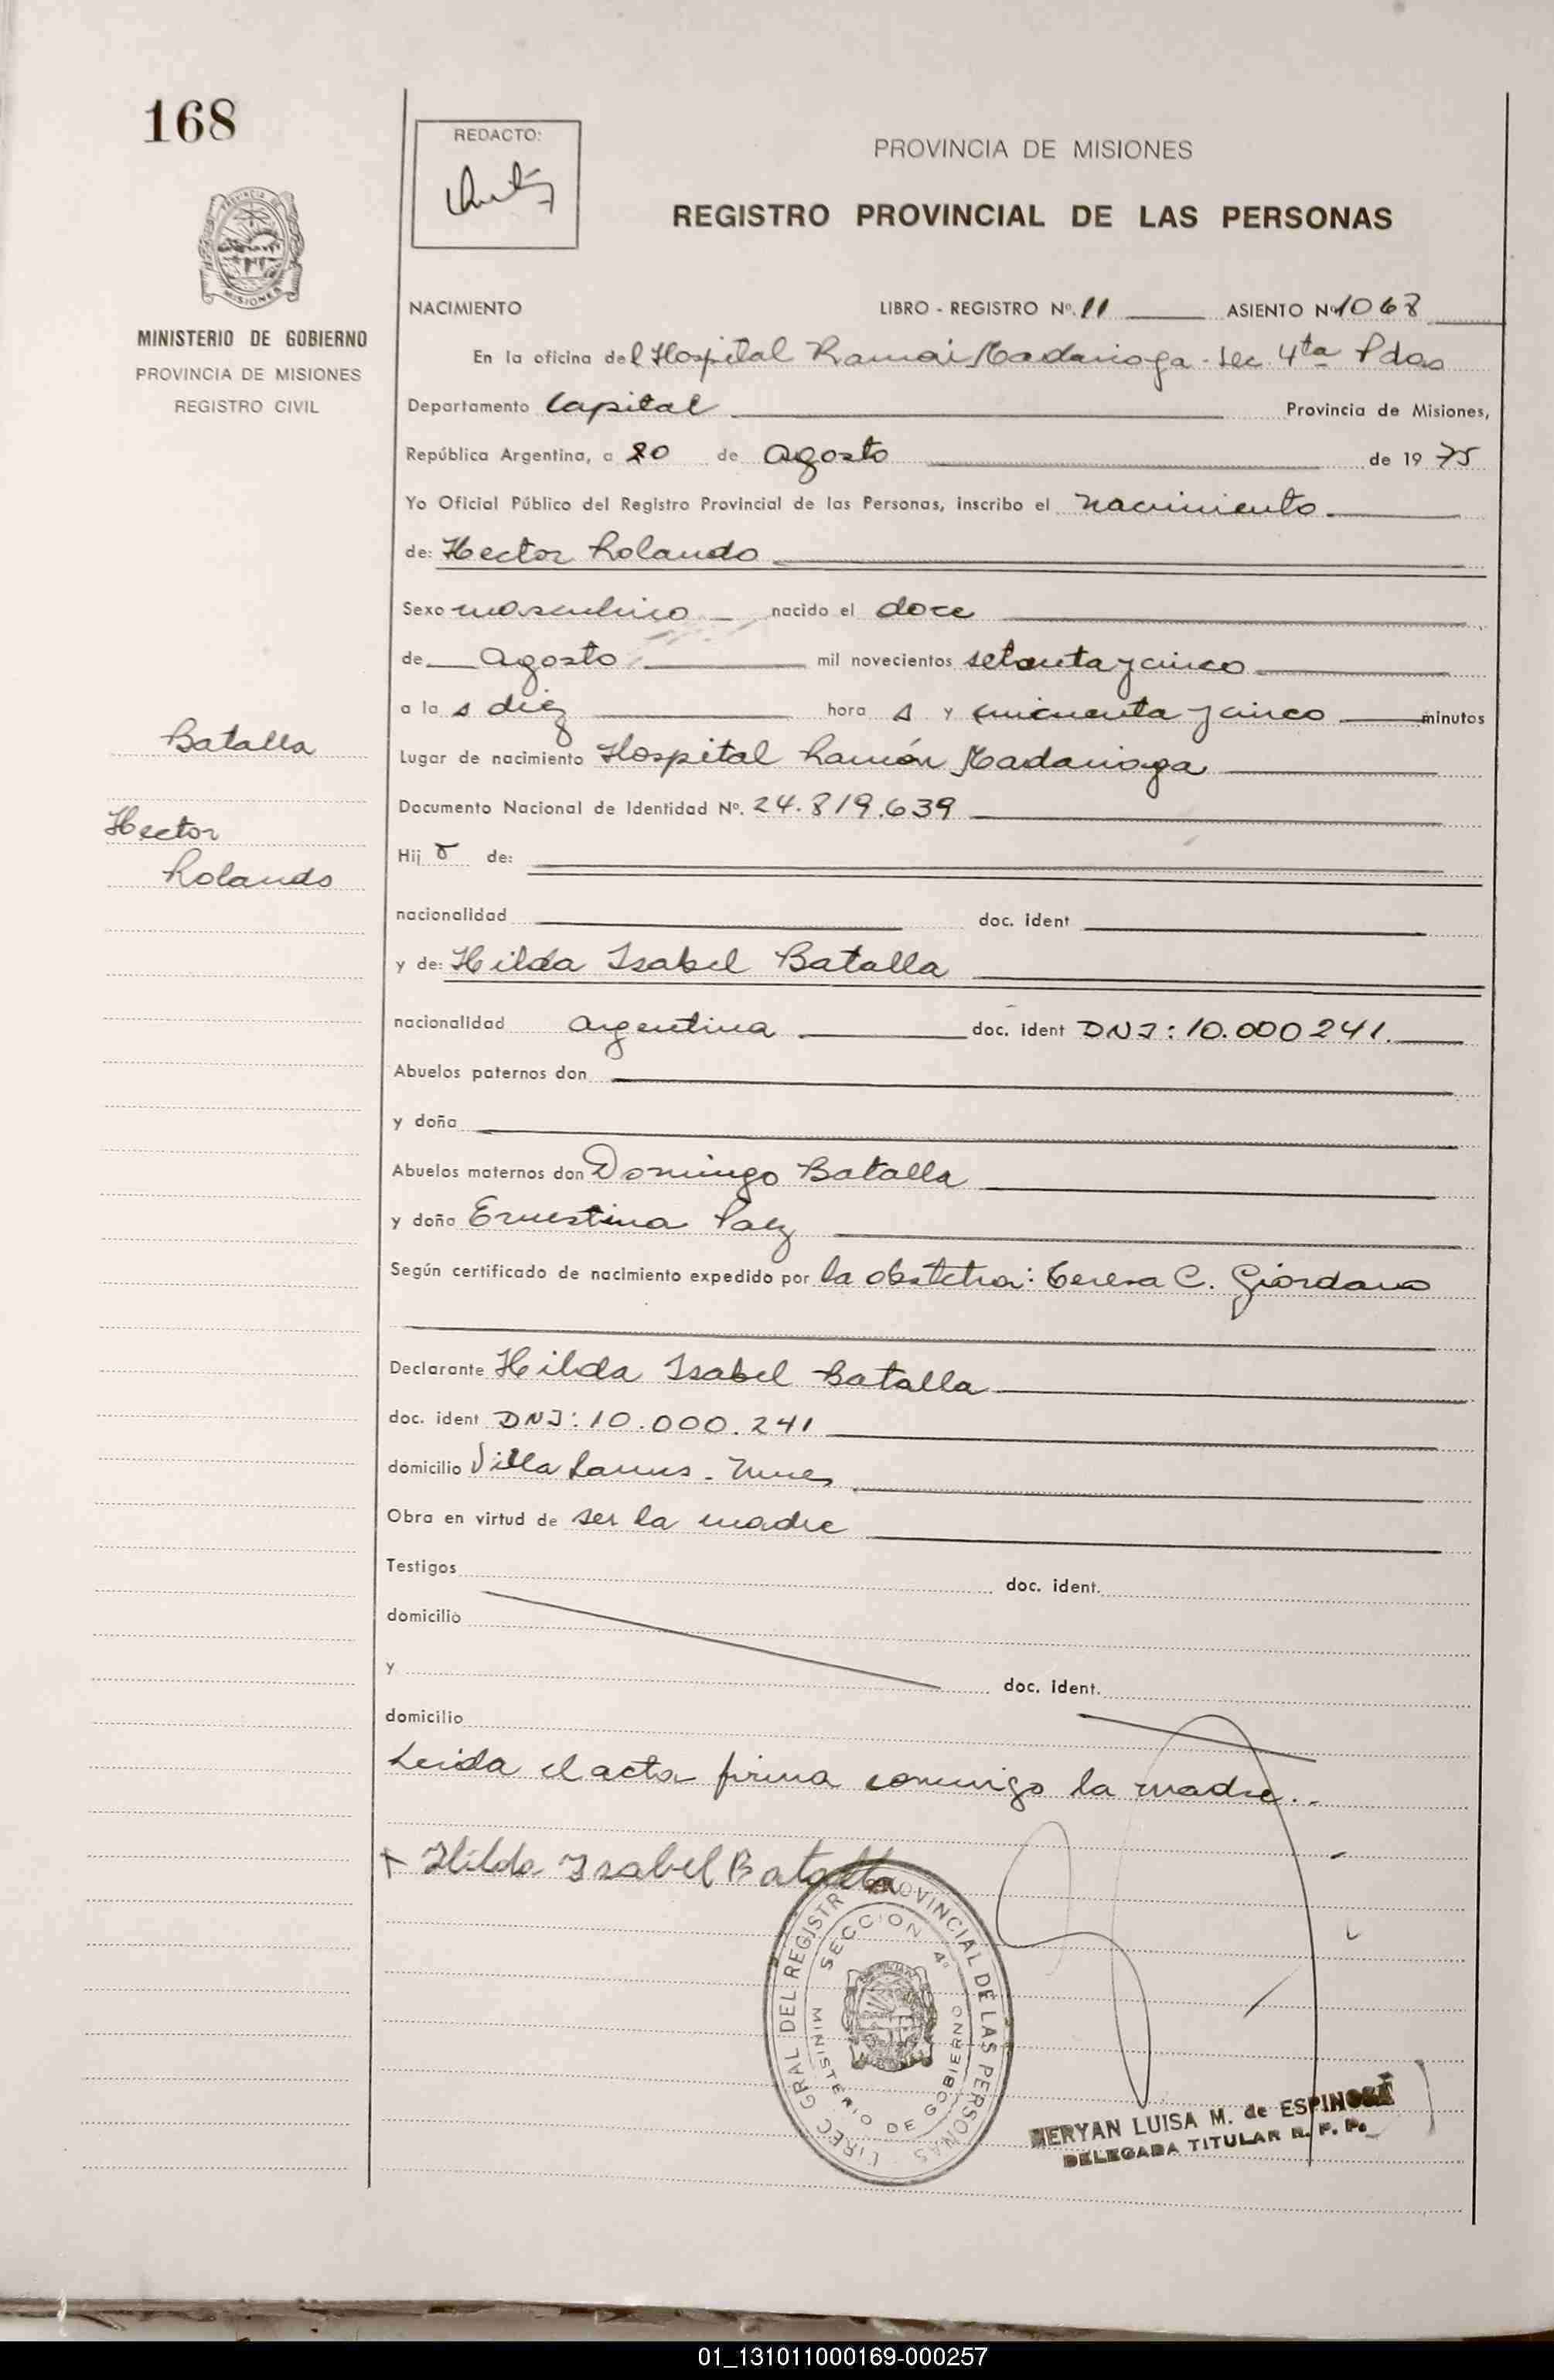 168
REDACTO:
PROVINCIA DE MISIONES
REGISTRO PROVINCIAL DE LAS PERSONAS
MISIONES
MINISTERIO DE GOBIERNO
PROVINCIA DE MISIONES
REGISTRO CIVIL
NACIMIENTO LIBRO - REGISTRO Nº. 11 ASIENTO Nº 1068
En la oficina del Hospital Ramón Madariaga - Sec 4ta Pdas
Departamento Capital Provincia de Misiones,
República Argentina, a 20 de Agosto de 1975
Yo Oficial Público del Registro Provincial de las Personas, inscribo el nacimiento
de: Hector Rolando
Sexo masculino nacido el doce
de Agosto mil novecientos setenta y cinco
a la s diez hora s y cincuenta y cinco minutos
Batalla
Lugar de nacimiento Hospital Ramón Madariaga
Documento Nacional de Identidad Nº. 24.819.639
Hector
Rolando
Hij o de:
nacionalidad doc. ident
y de: Hilda Isabel Batalla
nacionalidad argentina doc. ident DNI: 10.000241.
Abuelos paternos don
y doña
Abuelos maternos don Domingo Batalla
y doña Ernestina Paez
Según certificado de nacimiento expedido por la obstetra: Teresa C. Giordano
Declarante Hilda Isabel Batalla
doc. ident DNI: 10.000.241
domicilio Villa Lanus -
Obra en virtud de ser la madre
Testigos doc. ident.
domicilio
y doc. ident.
domicilio
Leida el acta firma conmigo la madre..
Hilda Isabel Batalla
DIREC GRAL DEL REGISTR PROVINCIAL DE LAS PERSONAS
SECCION 4º
MINISTERIO DE GOBIERNO
NERYAN LUISA M. de ESPINOSA
DELEGADA TITULAR R. P. P.
01_131011000169-000257